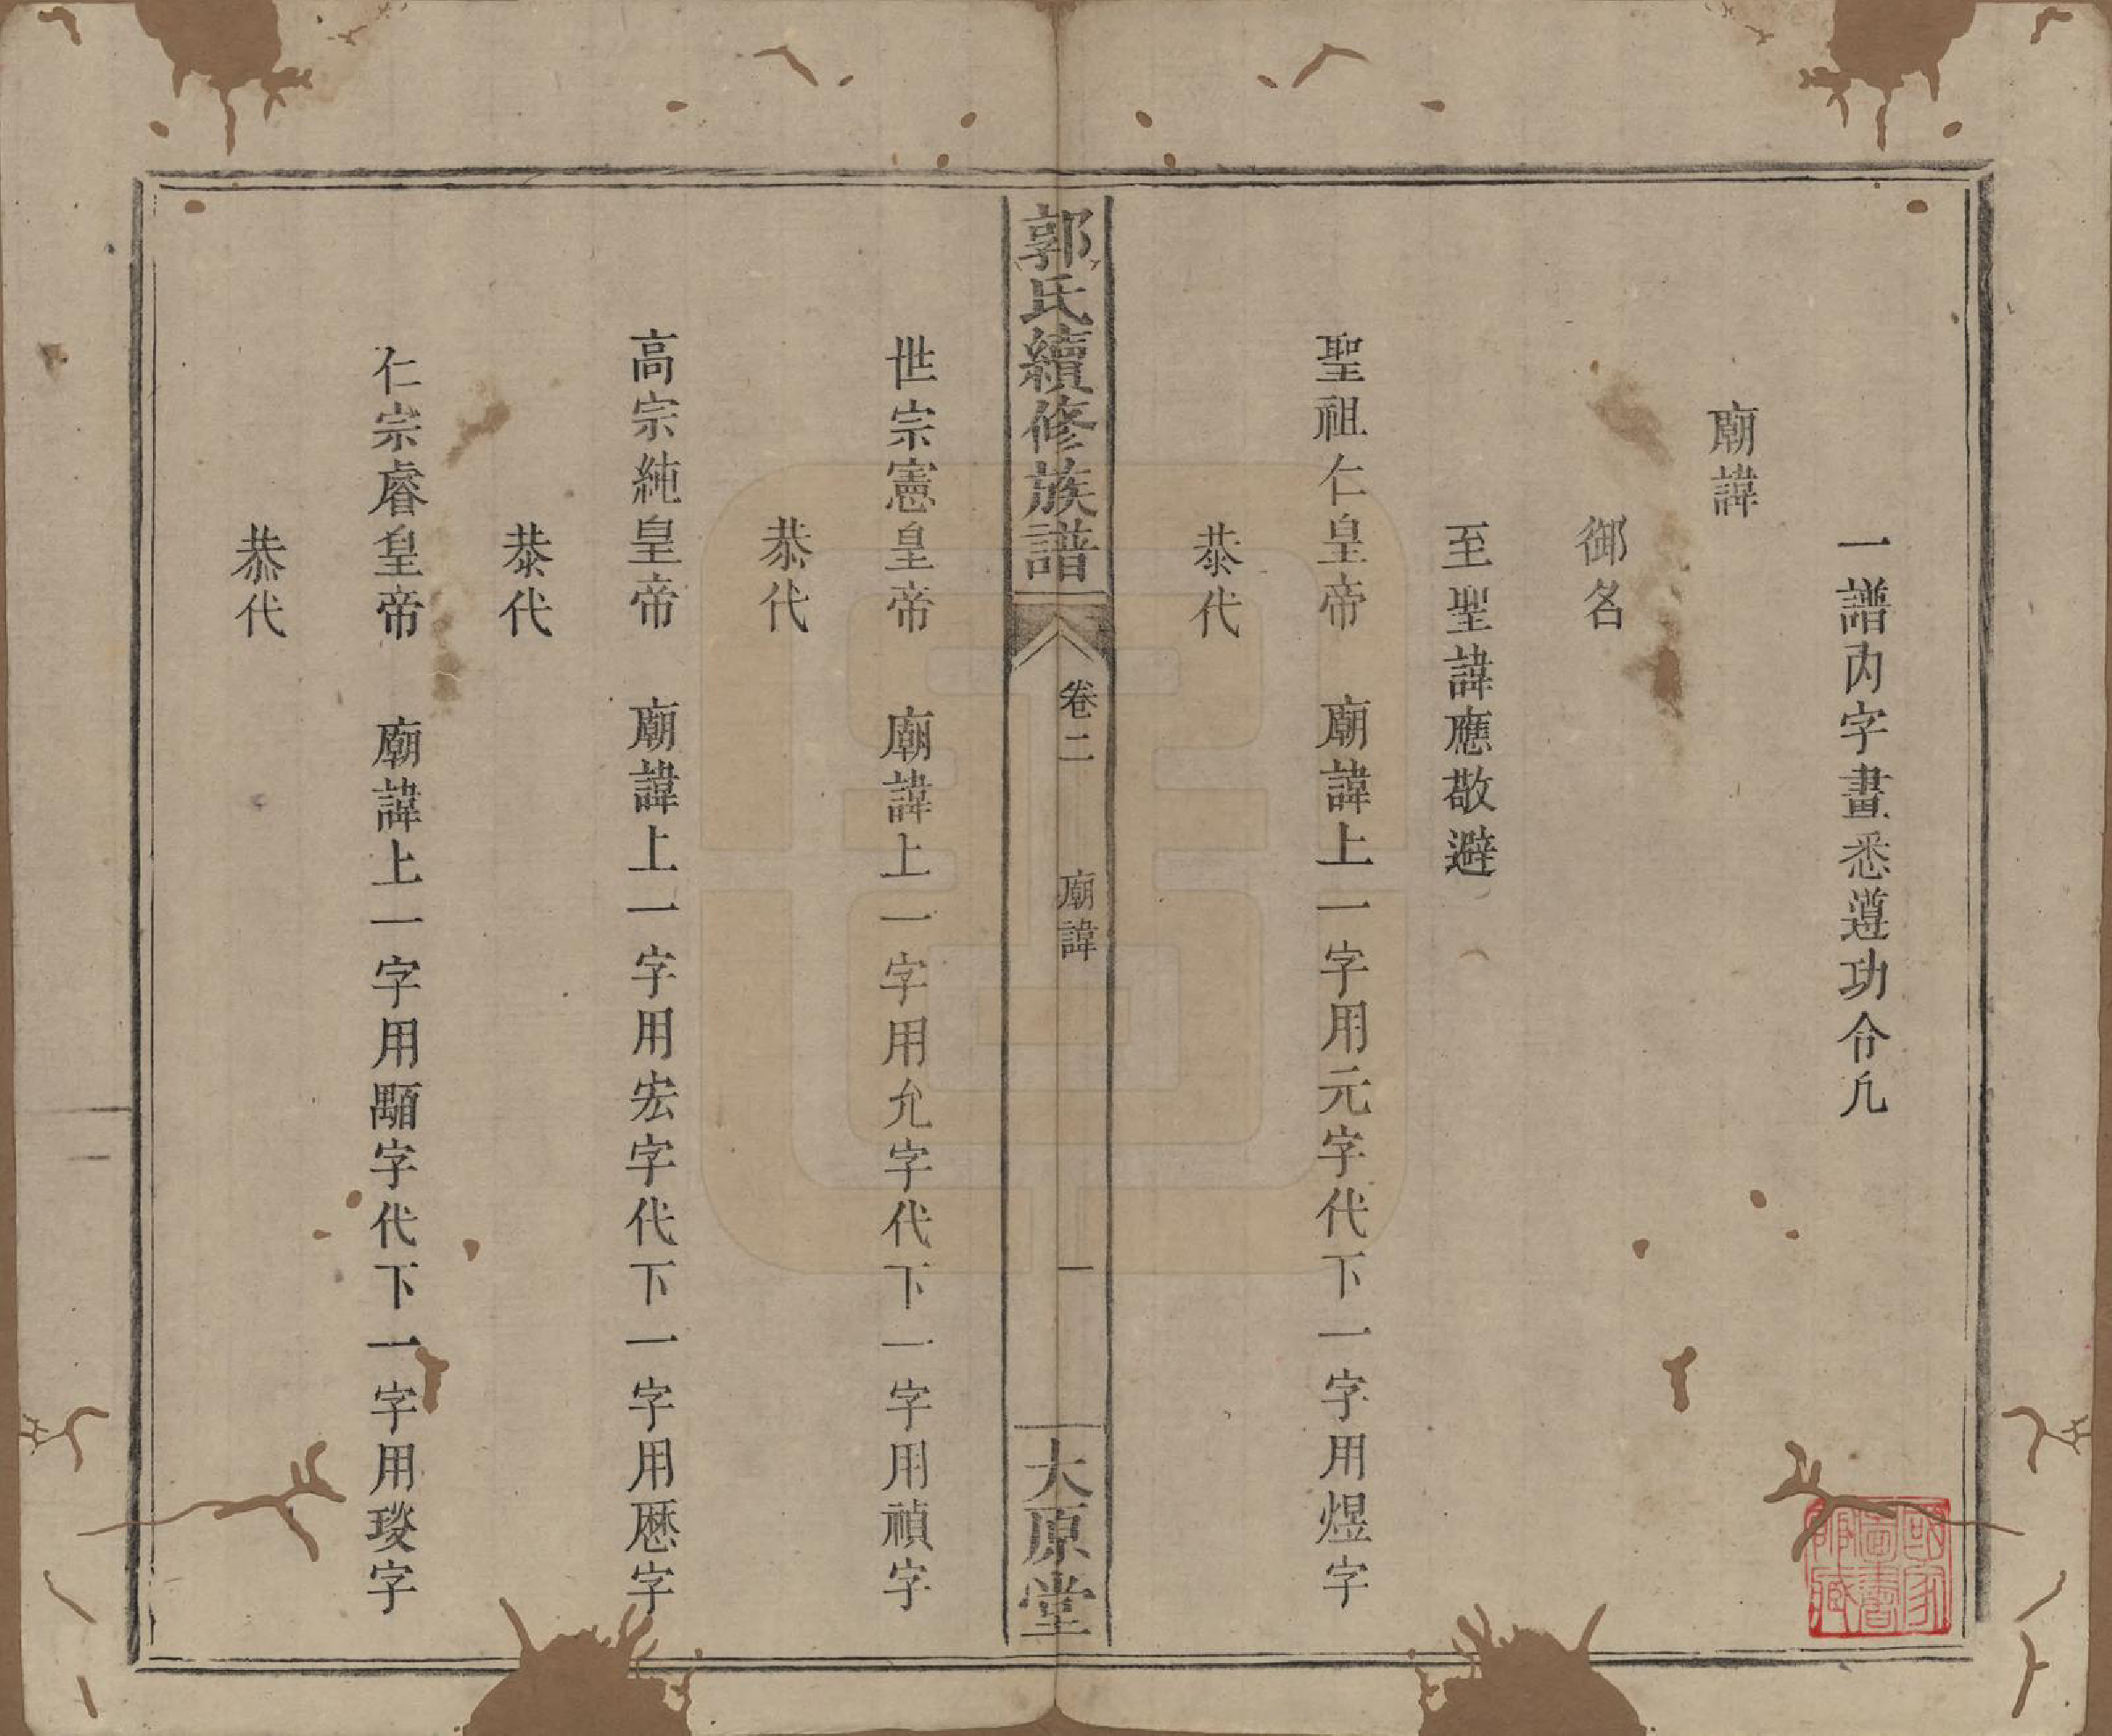 一譜內字畫悉遵功令凡
廟諱
御名
至聖諱應敬避
聖祖仁皇帝 廟諱上一字用元字代下一字用煜字
恭代
郭氏續修族譜 卷二 廟諱 一 大原堂
世宗憲皇帝 廟諱上一字用允字代下一字用禎字
恭代
高宗純皇帝 廟諱上一字用宏字代下一字用厯字
恭代
仁宗睿皇帝 廟諱上一字用顒字代下一字用琰字
恭代
國家
圖書
館藏